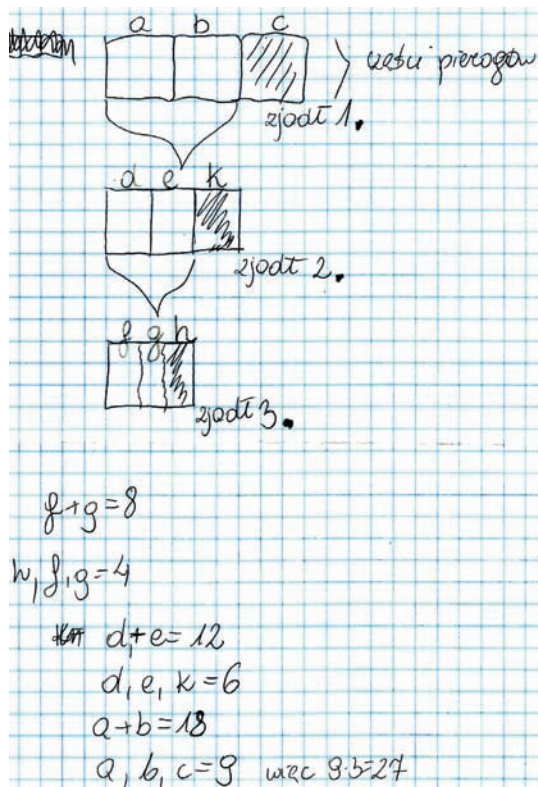 a b c
części pierogów
zjadł 1.
d e k
zjadł 2.
f g h
zjadł 3.
f+g=8
h, f, g=4
d+e=12
d, e, k=6
a+b=18
a, b, c=9 więc 9·3=27